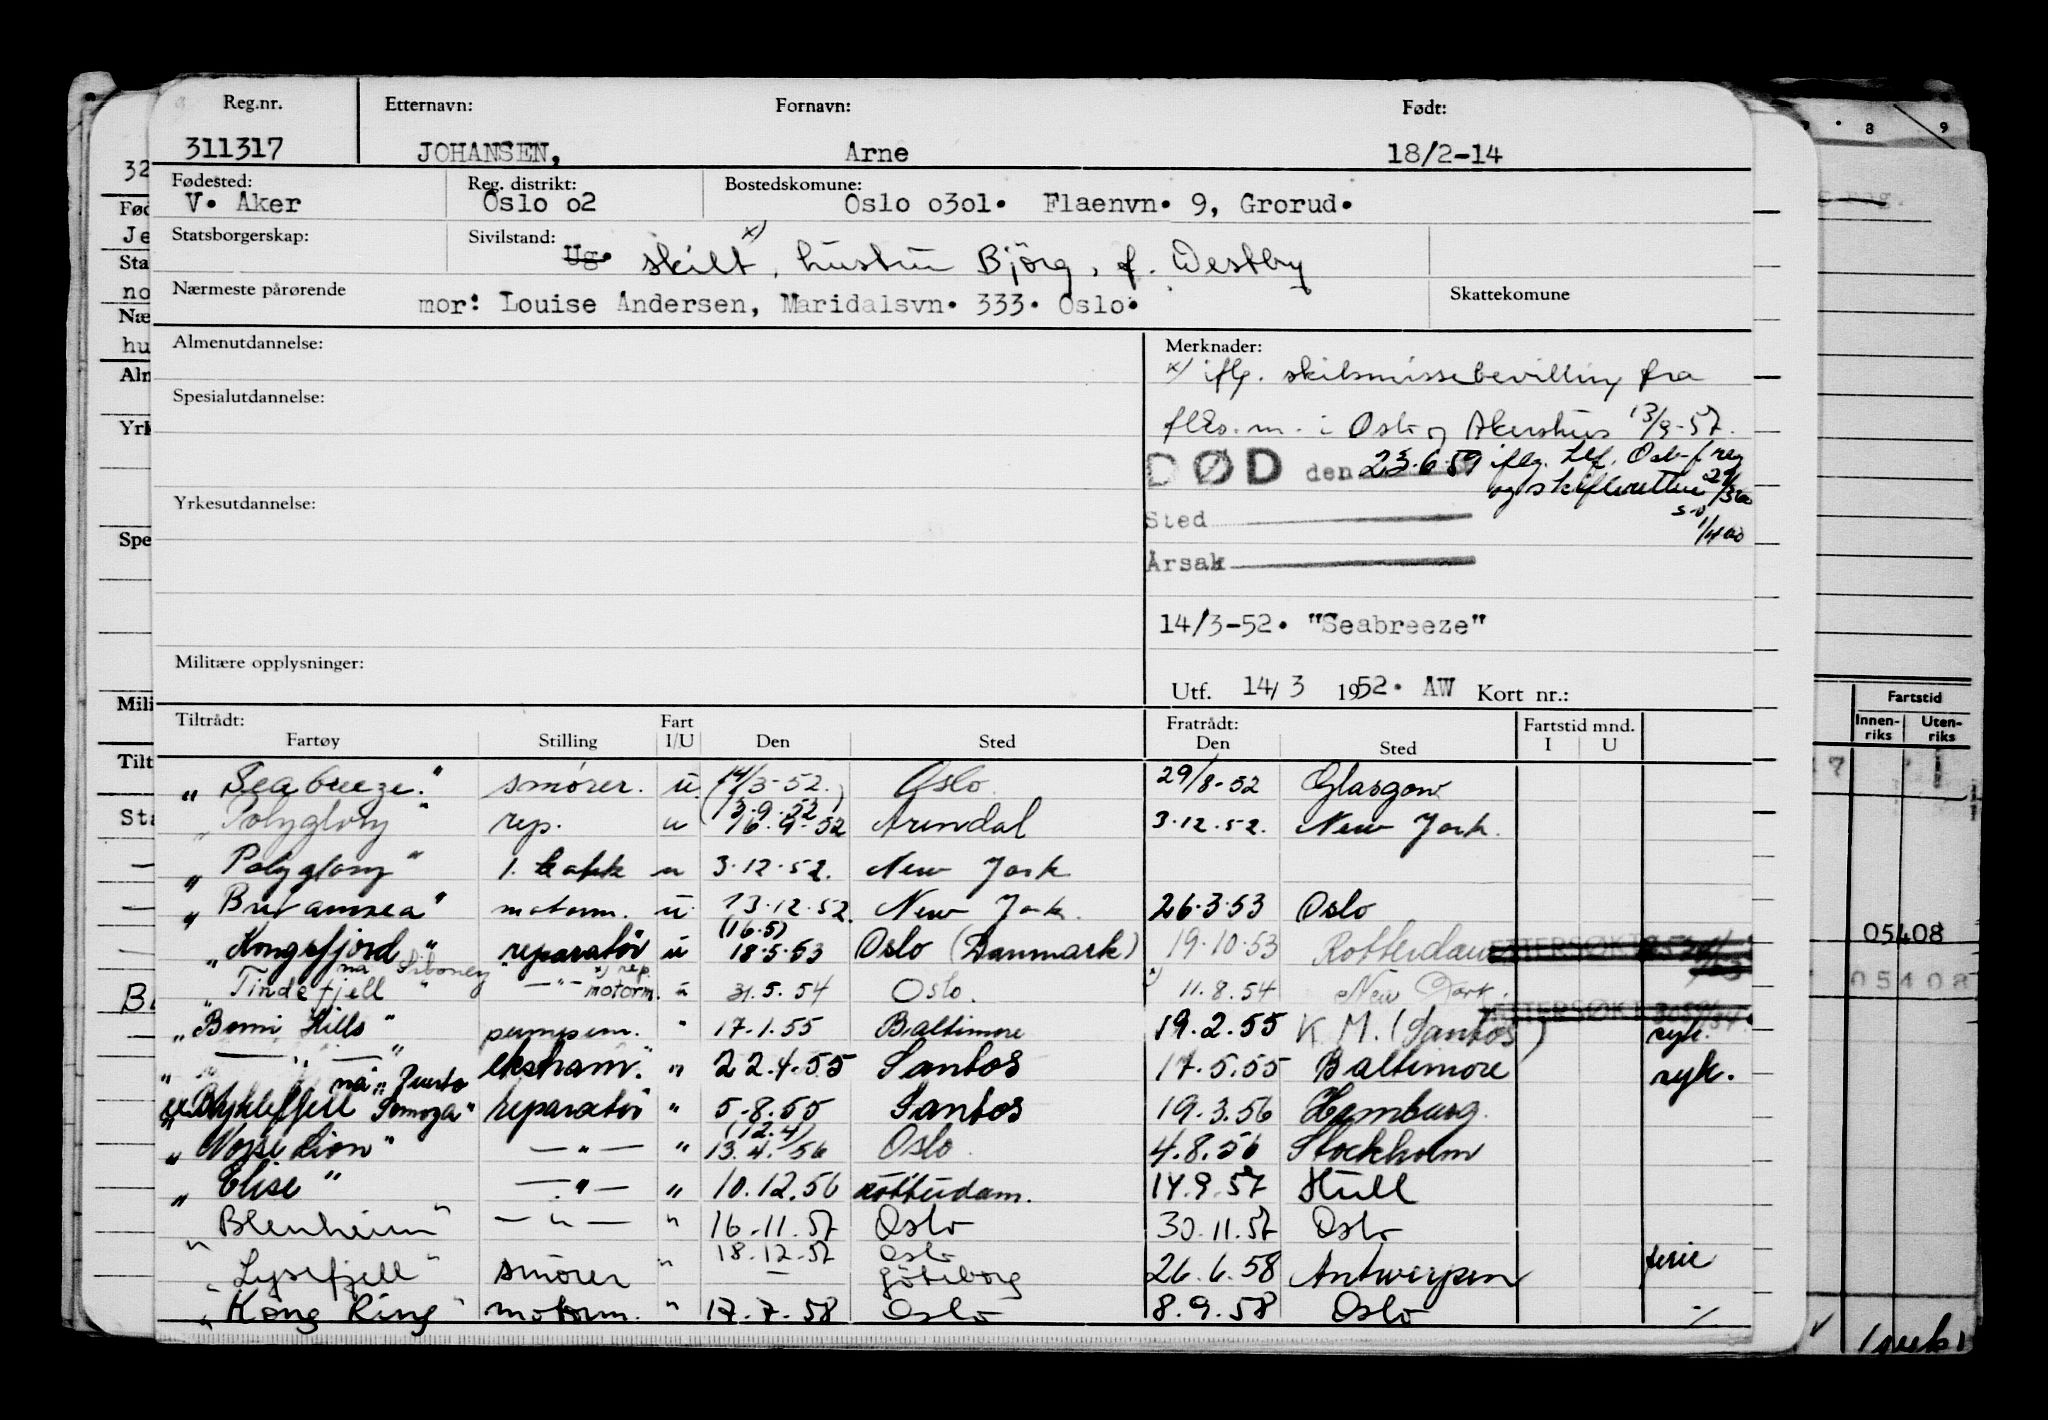 Reg.nr. Etternavn: Fornavn: Født:
311317 JOHANSEN, Arne 18/2-14
Fødested: Reg. distrikt: Bostedskomune:
V. Aker Oslo o2 Oslo o3o1. Flaenvn. 9, Grorud.
Statsborgerskap: Sivilstand: Ug. skilt x), hustru Björg, f. Westby
Nærmeste pårørende mor: Louise Andersen, Maridalsvn. 333. Oslo. Skattekomune
Almenutdannelse: Merknader:
x) iflg. skilsmissebevilling fra
Spesialutdannelse:
i Oslo og Akershus 13/9-57.
DØD den 23.6.59 iflg. tlf. Oslo f.reg
og skifteretten
Yrkesutdannelse:
Sted
1/4 60
Årsak
14/3-52. "Seabreeze"
Militære opplysninger:
Utf. 14/3 1952. AW Kort nr.:
Tiltrådt: Fart Fratrådt: Fartstid mnd.
Fartøy Stilling I/U Den Sted Den Sted I U
"Seabreeze" smører. u. 14/3-52. Oslo. 29/8-52 Glasgow
"Polyglory" rep. u (13.9.52) 16.9.52 Arendal 3.12.52. New York.
"Polyglory" 1. u 3.12.52. New York
"Bruramsea" motorm. u. 13.12.52. New York. 26.3.53 Oslo
"Kongsfjord" reparatör u (16.5) 18.5.53 Oslo (Danmark) 19.10.53 Rotterdam
"Tindefjell" nå "Siboney" —"— x) rep. motorm. u 31.5.54 Oslo. x) 11.8.54 New York.
"Bomi Hills" pumpem. " 17.1.55 Baltimore 19.2.55 K.M. (Santos) syk.
" —"— " ekstram. " 22.4.55 Santos 17.5.55 Baltimore syk.
"Byklefjell" nå "Puerto Somoza" reparatör " 5.8.55 Santos 19.3.56 Hamburg.
"Norse Lion" —"— " (12.4) 13.4.56 Oslo. 4.8.56 Stockholm
"Elise" —"— " 10.12.56 Rotterdam. 14.9.57 Hull
"Blenheim" —"— " 16.11.57 Oslo 30.11.57 Oslo
"Lysefjell" smører " 18.12.57 — Oslo göteborg 26.6.58 Antwerpen ferie
"Kong Ring" motorm. " 17.7.58 Oslo 8.9.58 Oslo ./.
8 9
Fartstid
Innen-riks Uten-riks
05408
05408
32
Fød
Je
Sta
no
Næ
hu
Aln
Yrk
Spe
Mili
Tilt